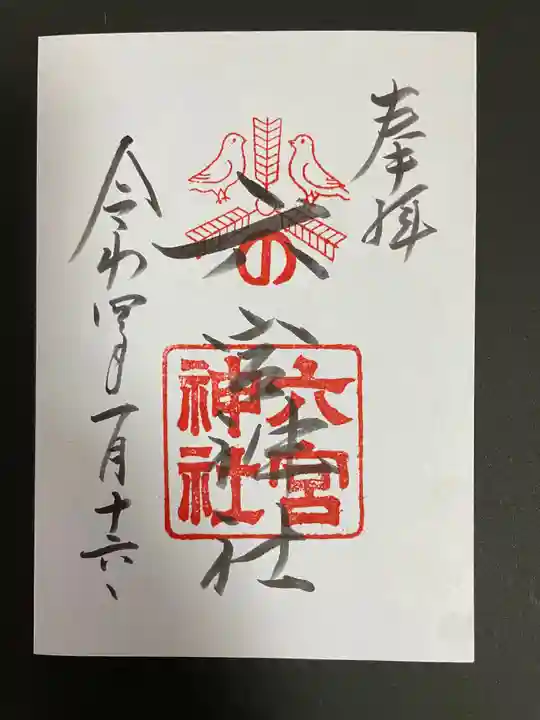 奉拝
六
の
宮神社
六宮
神社
令和四年一月十六、